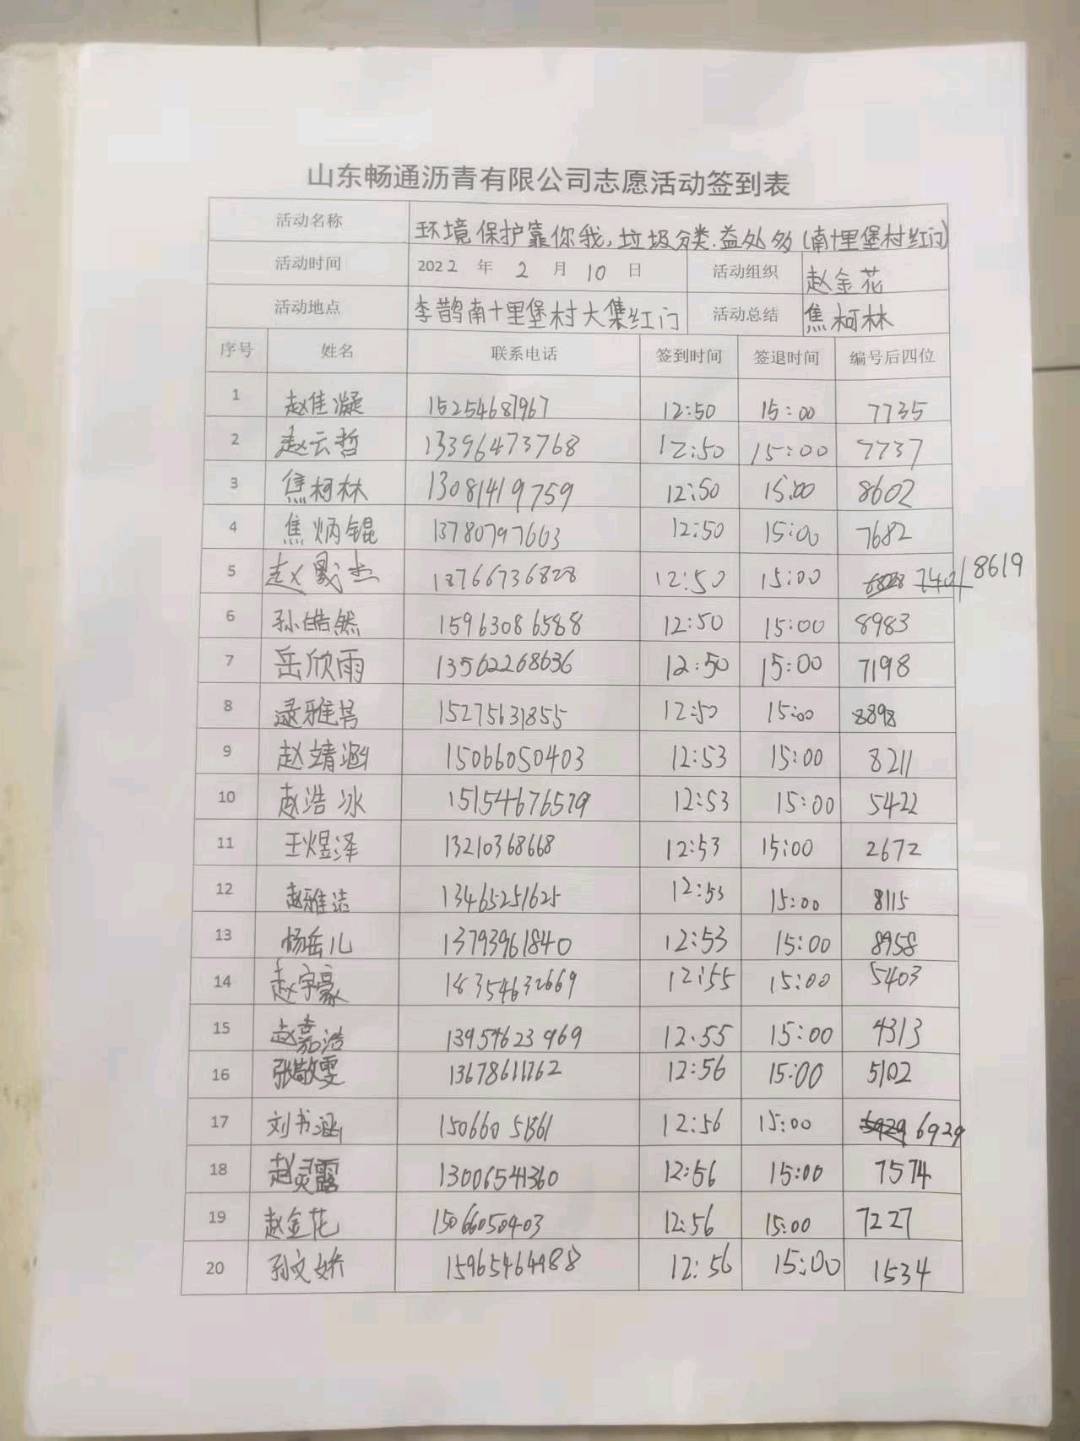 山东畅通沥青有限公司志愿活动签到表
活动名称 环境保护靠你我,垃圾分类.益处多(南十里堡村红门)
活动时间 2022 年 2 月 10 日 活动组织 赵金花
活动地点 李鹊南十里堡村大集红门 活动总结 焦柯林
序号 姓名 联系电话 签到时间 签退时间 编号后四位
1 赵佳凝 15254687967 12:50 15:00 7735
2 赵云哲 13396473768 12:50 15:00 7737
3 焦柯林 13081419759 12:50 15:00 8602
4 焦炳锟 13780797663 12:50 15:00 7682
5 赵 杰 18766736828 12:50 15:00 8619
6 孙皓然 15963086588 12:50 15:00 8983
7 岳欣雨 13562268636 12:50 15:00 7198
8 15275631855 12:50 15:00 8898
9 赵靖涵 15066050403 12:53 15:00 8211
10 赵浩冰 15154676579 12:53 15:00 5422
11 王煜泽 13210368668 12:53 15:00 2672
12 赵雅洁 13465251625 12:53 15:00 8115
13 杨岳儿 13793961840 12:53 15:00 8958
14 赵宇豪 18354632669 12:55 15:00 5403
15 赵嘉浩 13954623969 12.55 15:00 4313
16 张敬雯 13678611762 12:56 15:00 5102
17 刘书涵 15066051361 12:56 15:00 6929
18 赵灵露 13006541360 12:56 15:00 7574
19 赵金花 15066050403 12:56 15:00 7227
20 孙文娇 15965464988 12:56 15:00 1534